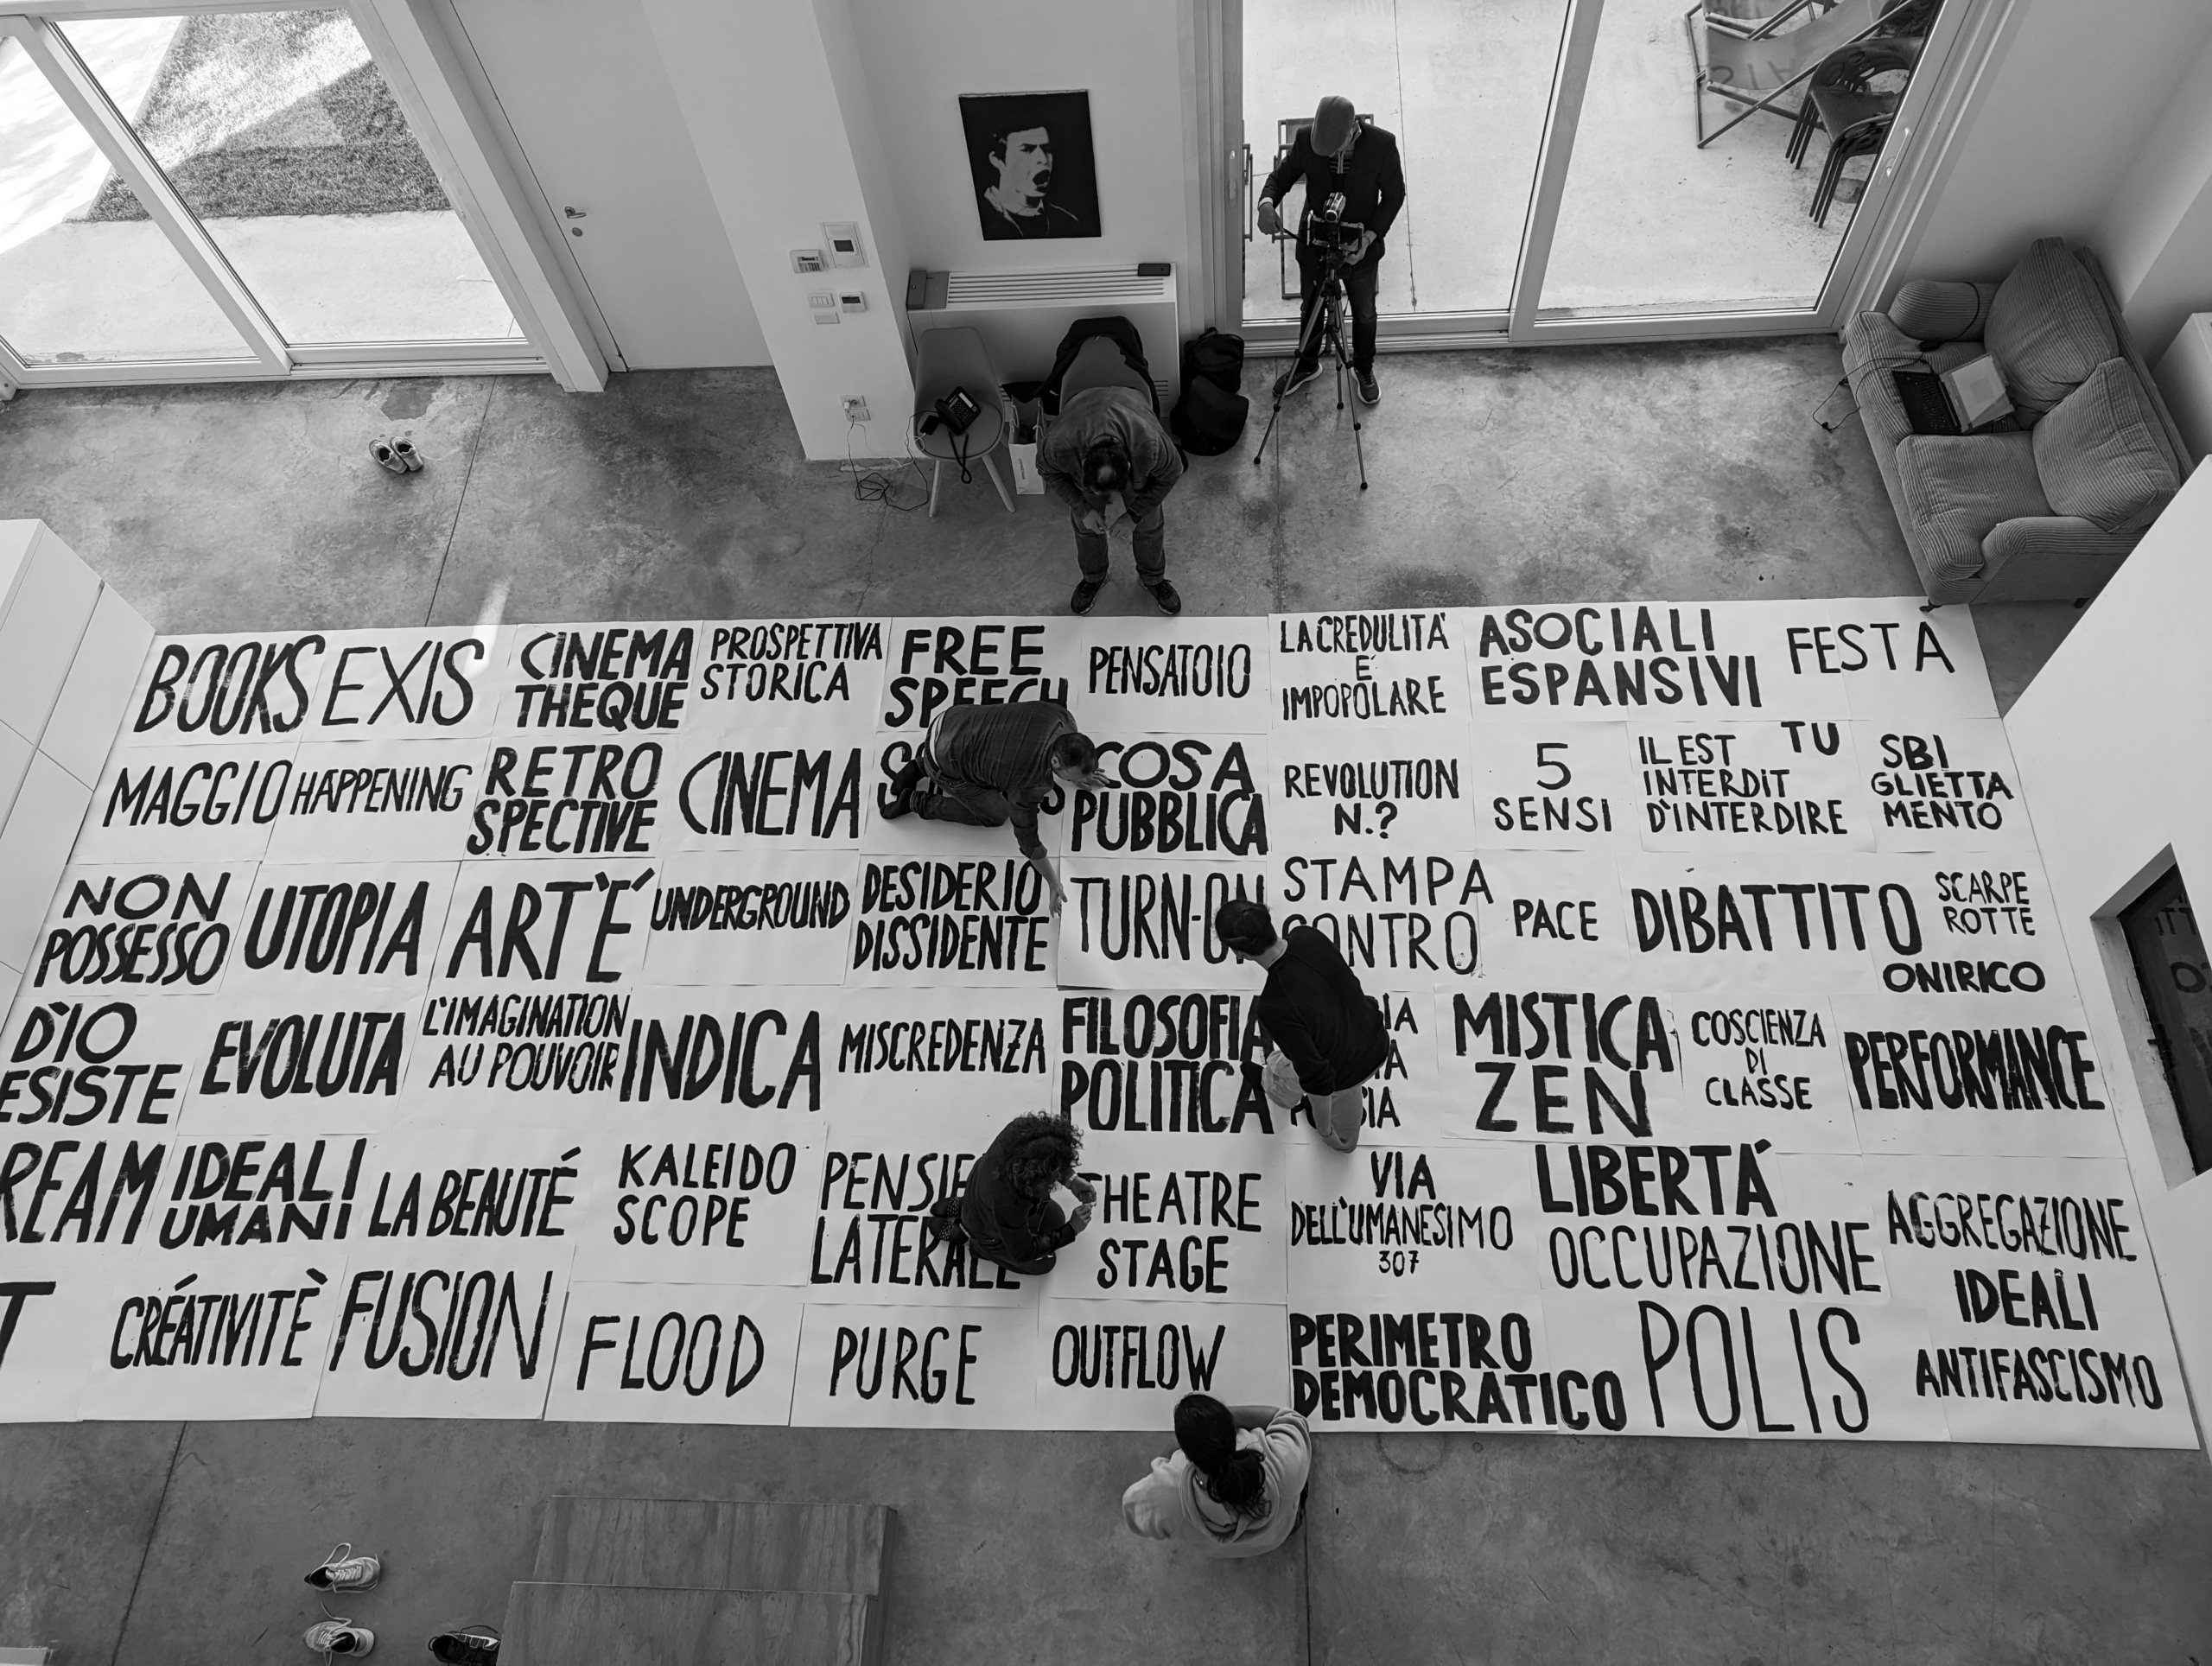 BOOKS
EXIS
CINEMA
THEQUE
PROSPETTIVA
STORICA
FREE
SPEECH
PENSATOIO
LA CREDULITA'
E'
IMPOPOLARE
ASOCIALI
ESPANSIVI
FESTA
MAGGIO
HAPPENING
RETRO
SPECTIVE
CINEMA
COSA
PUBBLICA
REVOLUTION
N.?
5
SENSI
IL EST
INTERDIT
D'INTERDIRE
TU
SBI
GLIETTA
MENTO
NON
POSSESSO
UTOPIA
ART'È'
UNDERGROUND
DESIDERIO
DISSIDENTE
TURN-ON
STAMPA
CONTRO
PACE
DIBATTITO
SCARPE
ROTTE
ONIRICO
D'IO
ESISTE
EVOLUTA
L'IMAGINATION
AU POUVOIR
INDICA
MISCREDENZA
FILOSOFIA
POLITICA
MISTICA
ZEN
COSCIENZA
DI
CLASSE
PERFORMANCE
REAM
IDEALI
UMANI
LA BEAUTÉ
KALEIDO
SCOPE
PENSIE
LATERALE
THEATRE
STAGE
VIA
DELL'UMANESIMO
307
LIBERTÁ
OCCUPAZIONE
AGGREGAZIONE
IDEALI
ANTIFASCISMO
T
CRÉATIVITÈ
FUSION
FLOOD
PURGE
OUTFLOW
PERIMETRO
DEMOCRATICO
POLIS